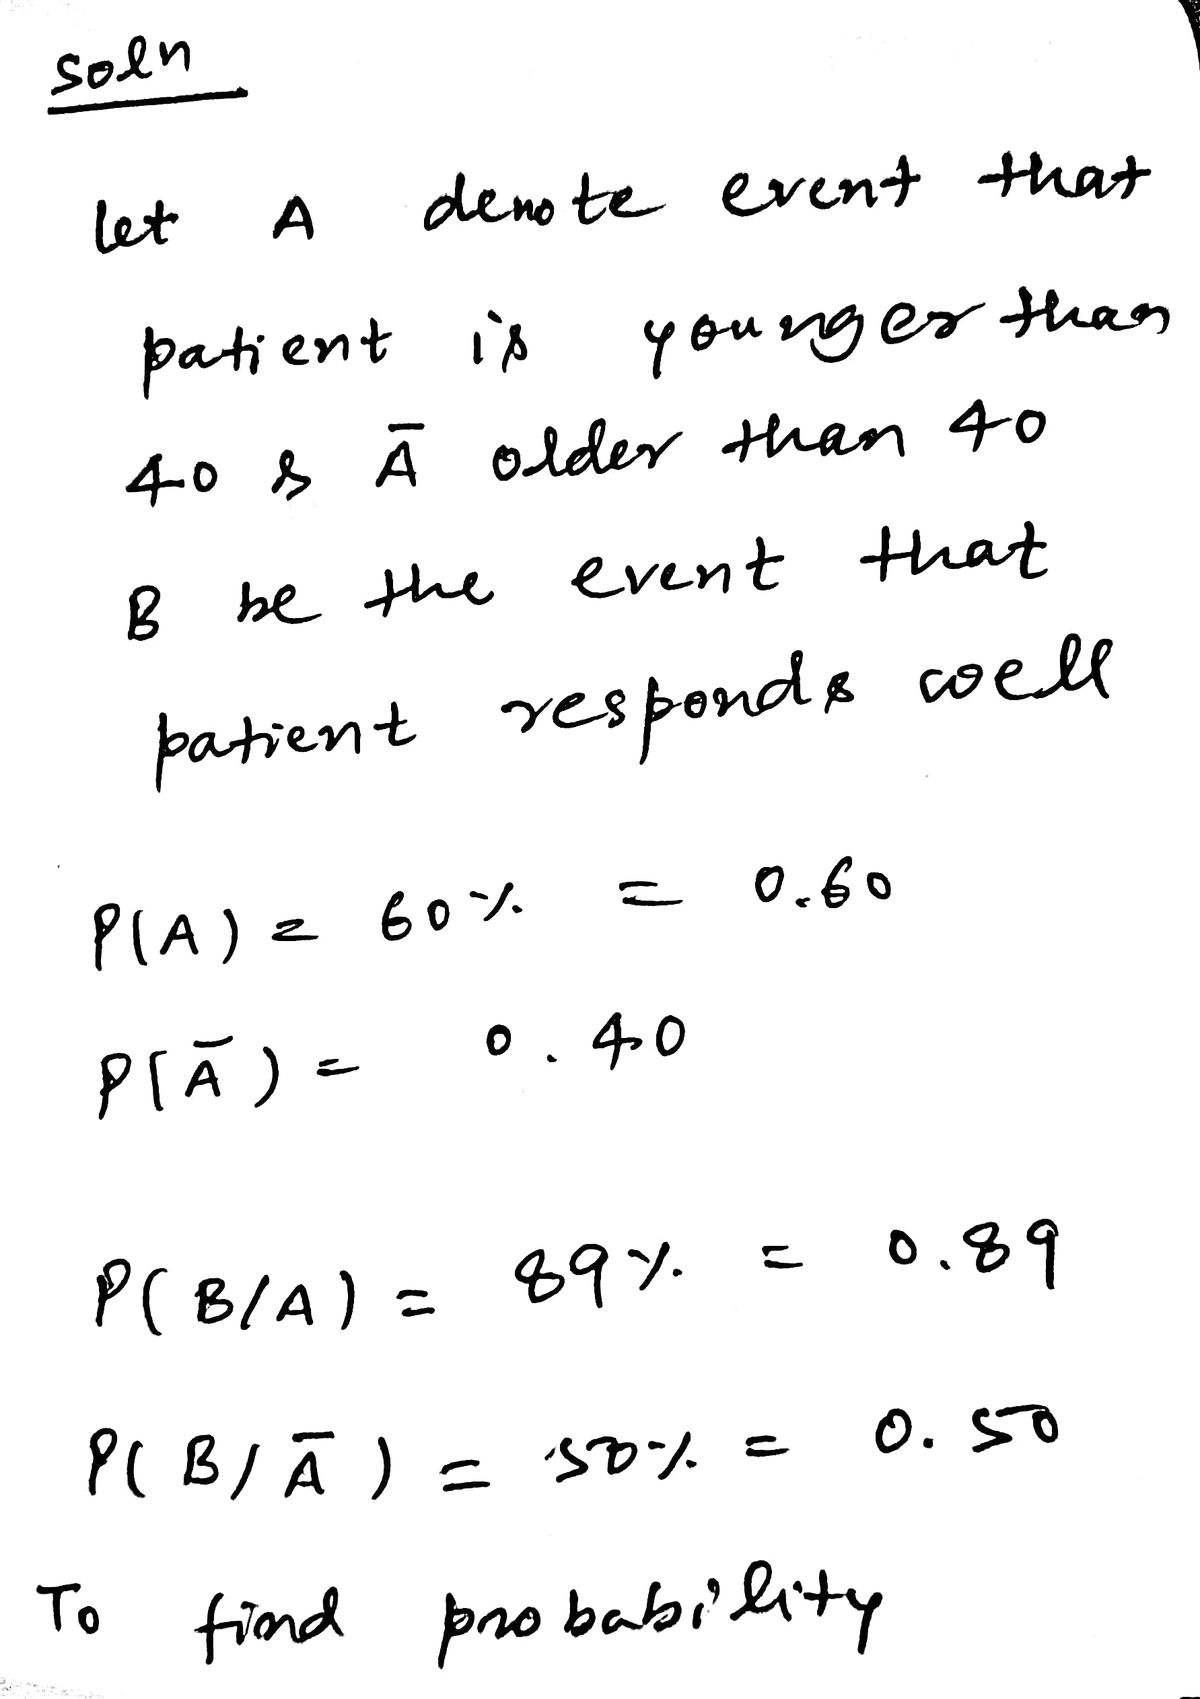 soln
let A denote event that
patient is younger than
40 & Ā older than 40
B be the event that
patient responds well
P(A) = 60% = 0.60
P(Ā) = 0.40
P(B/A) = 89% = 0.89
P(B/Ā) = 50% = 0.50
To find probability